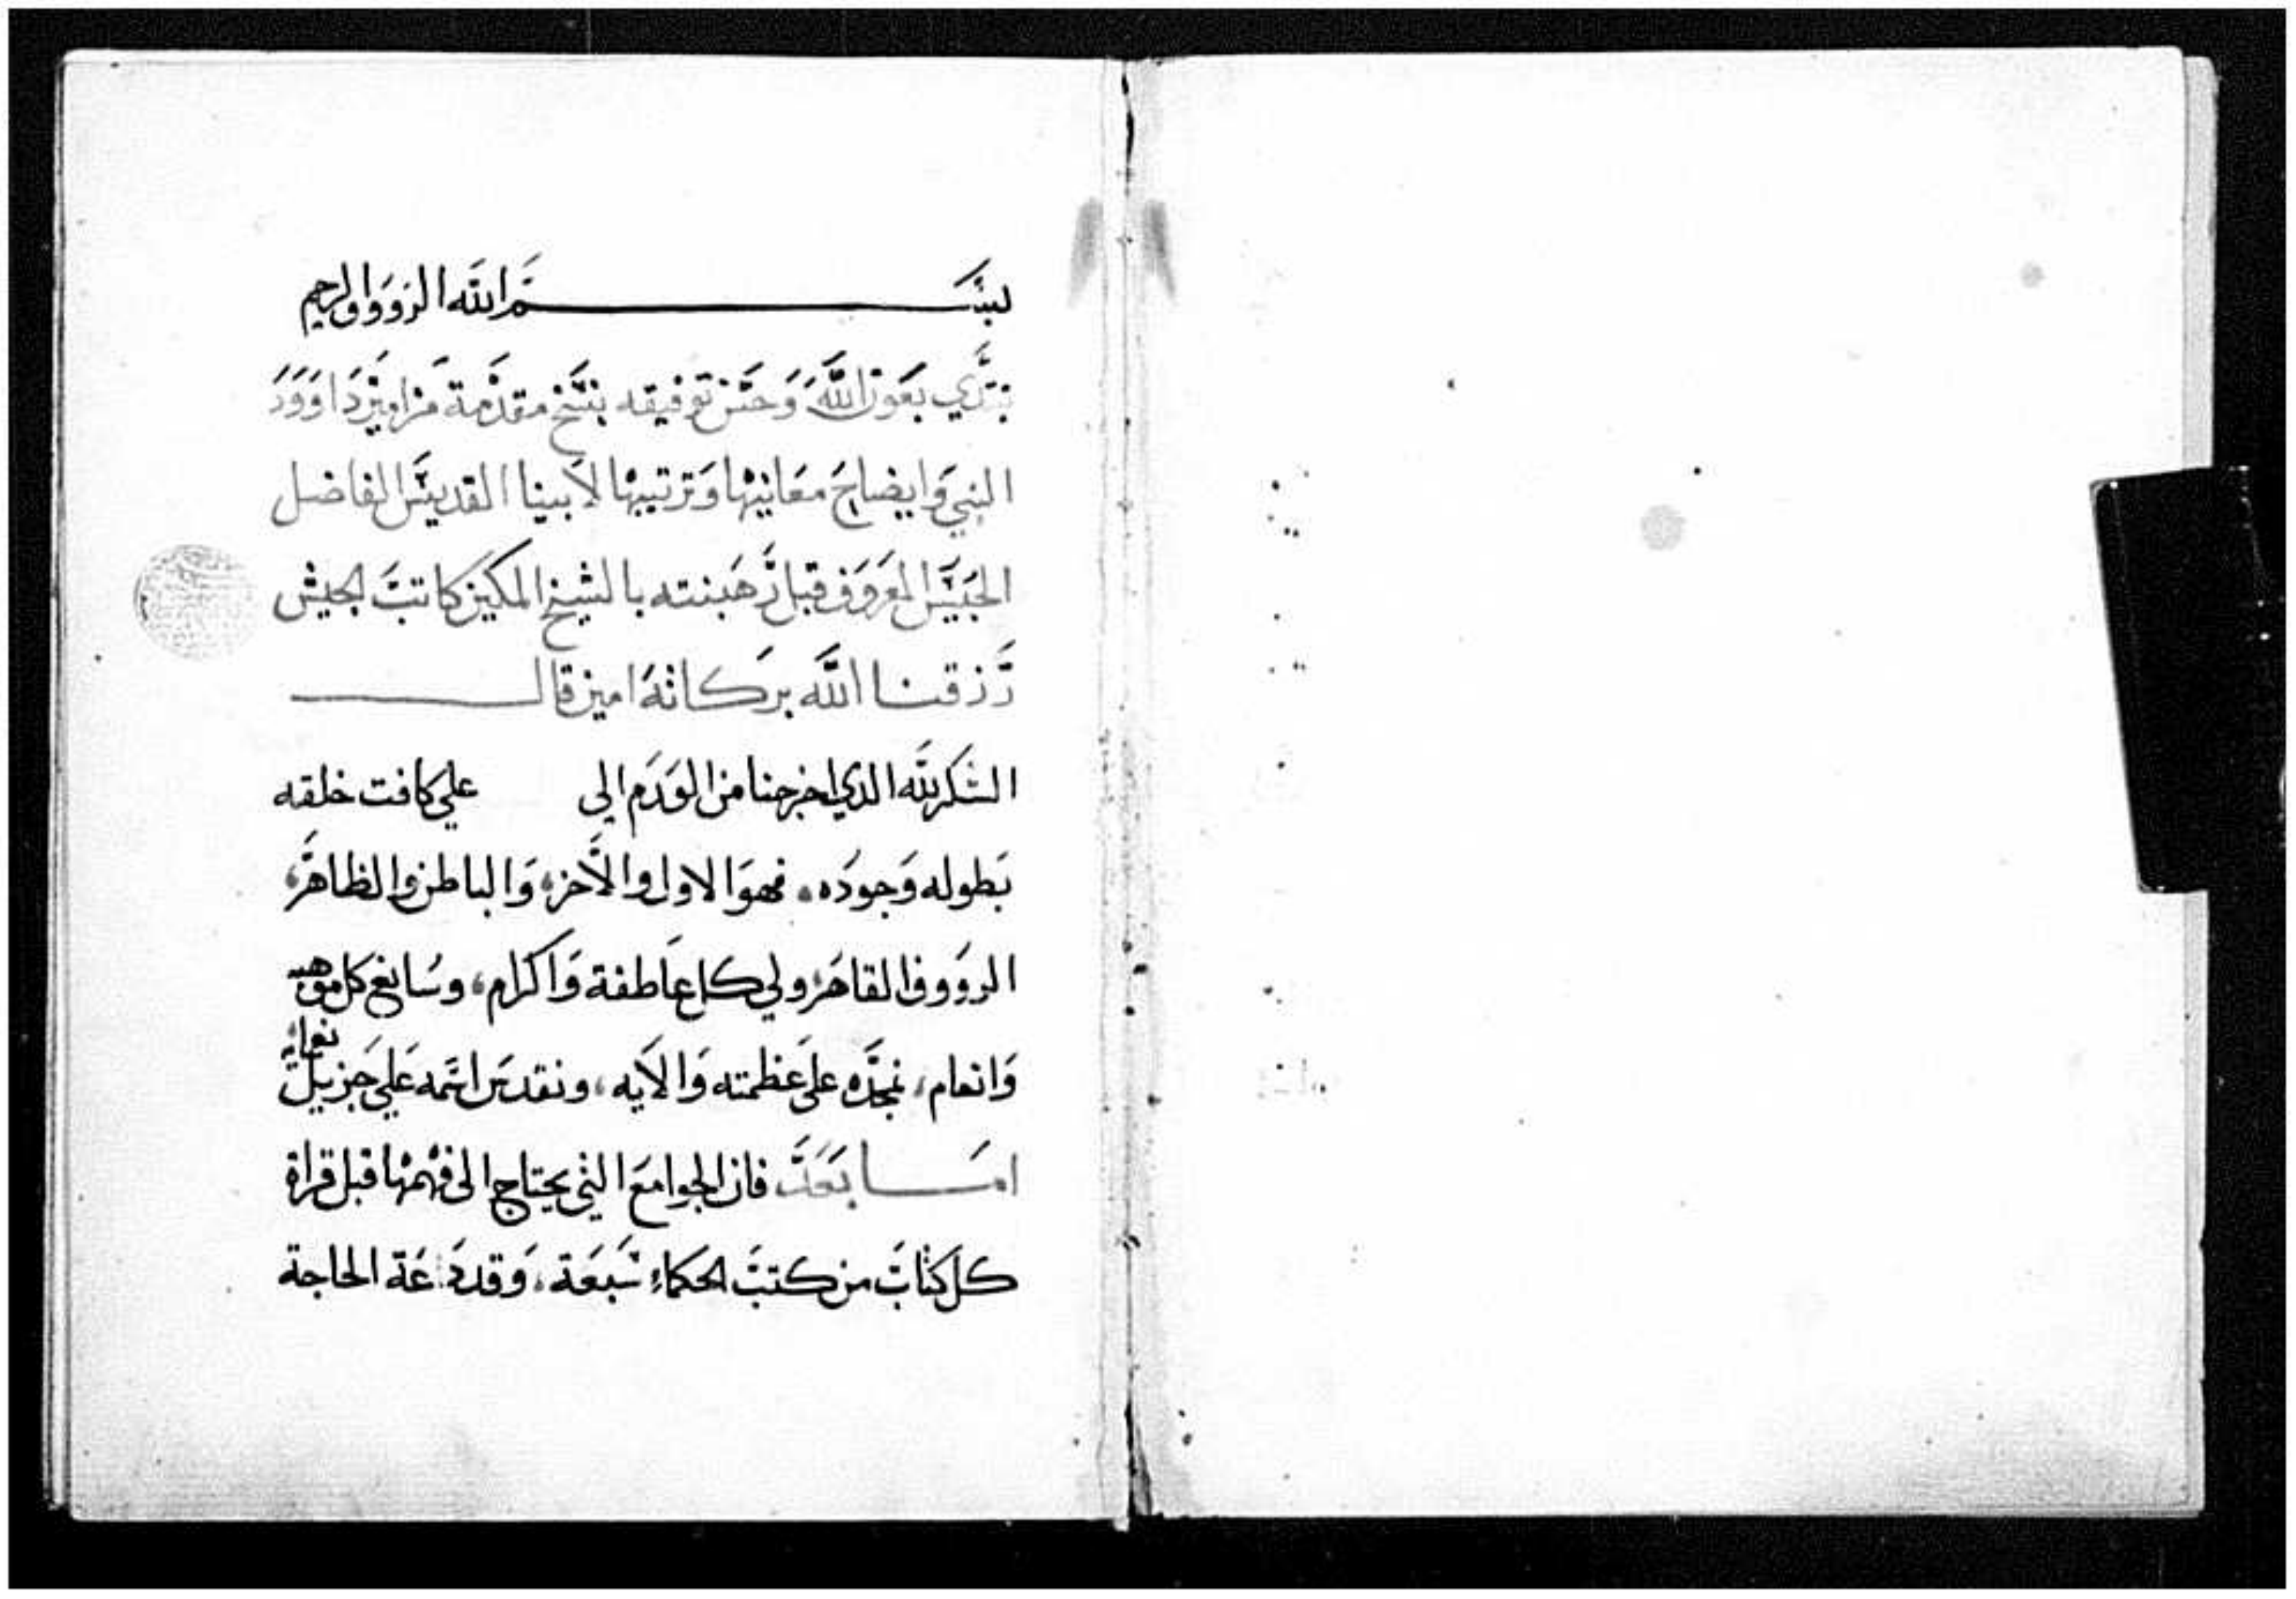 بسم الله الرووف الرحيم
نبتدي بعون الله وحسن توفيقه بنسخ مقدمة مزامير داوود
النبي وايضاح معانيها وترتيبها لابينا القديس الفاضل
الحبيس المعروف قبل رهبنته بالشيخ المكين كاتب الجيش
رزقنا الله بركاته امين قال
الشكر لله الذي اخرجنا من العدم الى علي كافت خلقه
بطوله وجوده. فهو الاول والآخر، والباطن والظاهر،
الرووف القاهر، ولي كل عاطفة واكرام، وسابغ كل موهبه
وانعام، نمجده على عظمته والآيه، ونقدس اسمه علي جزيل نعمايه
اما بعد فان الجوامع التي يحتاج الى فهمها قبل قراة
كل كتاب من كتب الحكماء سبعة، وقد دعة الحاجة